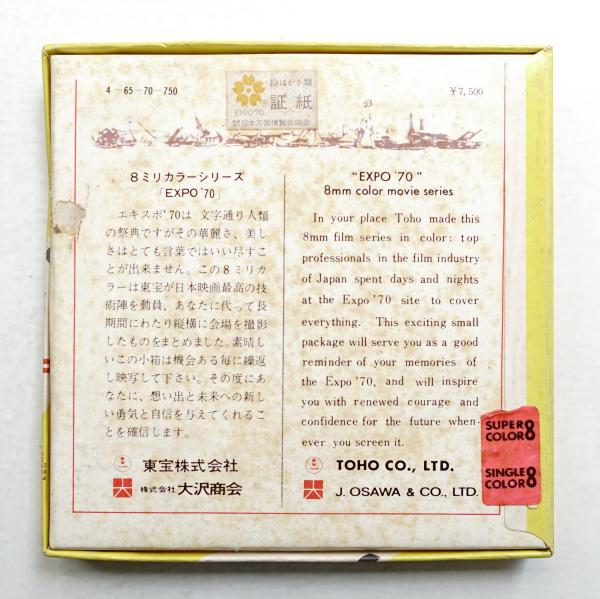 4－65－70－750
EXPO'70
絵はがき類
証紙
財団法人日本万国博覧会協会
¥7,500
8ミリカラーシリーズ
「EXPO '70」
エキスポ'70は 文字通り人類
の祭典ですがその華麗さ、美し
さはとても言葉ではいい尽すこ
とが出来ません。この8ミリカ
ラーは東宝が日本映画最高の技
術陣を動員、あなたに代って長
期間にわたり縦横に会場を撮影
したものをまとめました。素晴し
いこの小箱は機会ある毎に繰返
し映写して下さい。その度にあ
なたに、想い出と未来への新し
い勇気と自信を与えてくれるこ
とを確信します。
東宝株式会社
株式会社 大沢商会
"EXPO '70"
8mm color movie series
In your place Toho made this
8mm film series in color: top
professionals in the film industry
of Japan spent days and nights
at the Expo '70 site to cover
everything. This exciting small
package will serve you as a good
reminder of your memories of
the Expo '70, and will inspire
you with renewed courage and
confidence for the future when-
ever you screen it.
TOHO CO., LTD.
J. OSAWA & CO., LTD.
SUPER
COLOR 8
SINGLE
COLOR 8